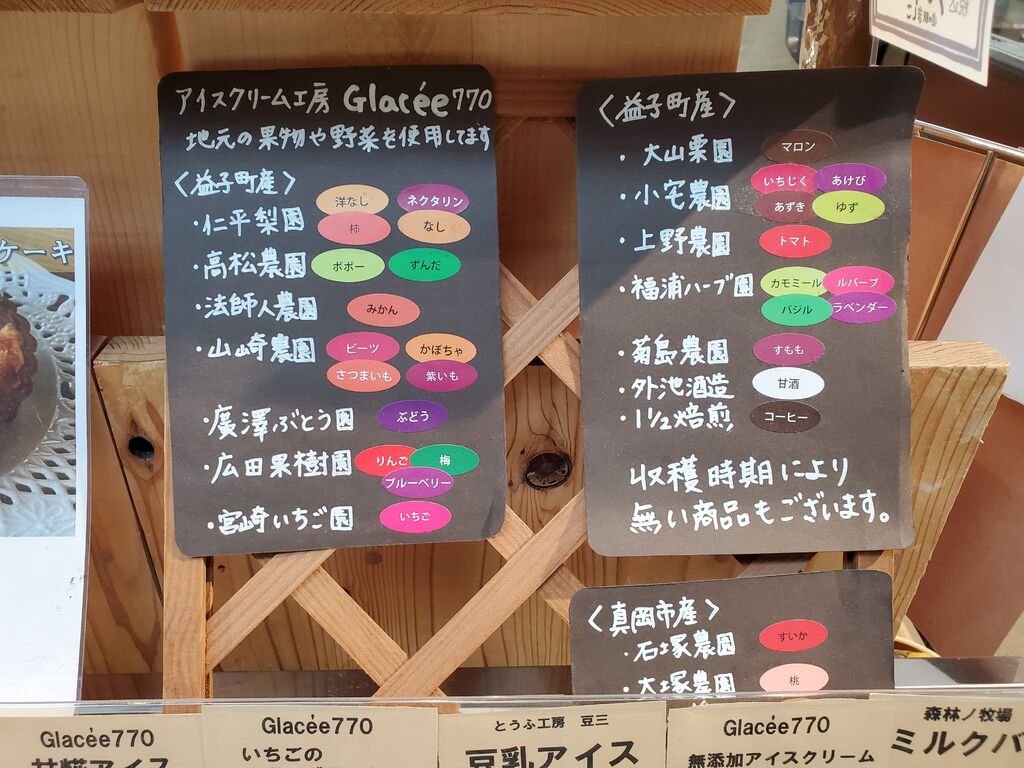 アイスクリーム工房 Glacée770
地元の果物や野菜を使用してます
〈益子町産〉
・仁平梨園 洋なし ネクタリン
柿 なし
・高松農園 ポポー ずんだ
・法師人農園 みかん
・山崎農園 ビーツ かぼちゃ
さつまいも 紫いも
・廣澤ぶとう園 ぶどう
・広田果樹園 りんご 梅
ブルーベリー
・宮崎いちご園 いちご
〈益子町産〉
・大山栗園 マロン
・小宅農園 いちじく あけび
あずき ゆず
・上野農園 トマト
・福浦ハーブ園 カモミール ルバーブ
バジル ラベンダー
・菊島農園 すもも
・外池酒造 甘酒
・1 1/2焙煎 コーヒー
収穫時期により
無い商品もございます。
〈真岡市産〉
・石塚農園 すいか
・大塚農園 桃
ケーキ
Glacée770
甘糀アイス
Glacée770
いちごの
とうふ工房 豆三
豆乳アイス
Glacée770
無添加アイスクリーム
森林ノ牧場
ミルクバ